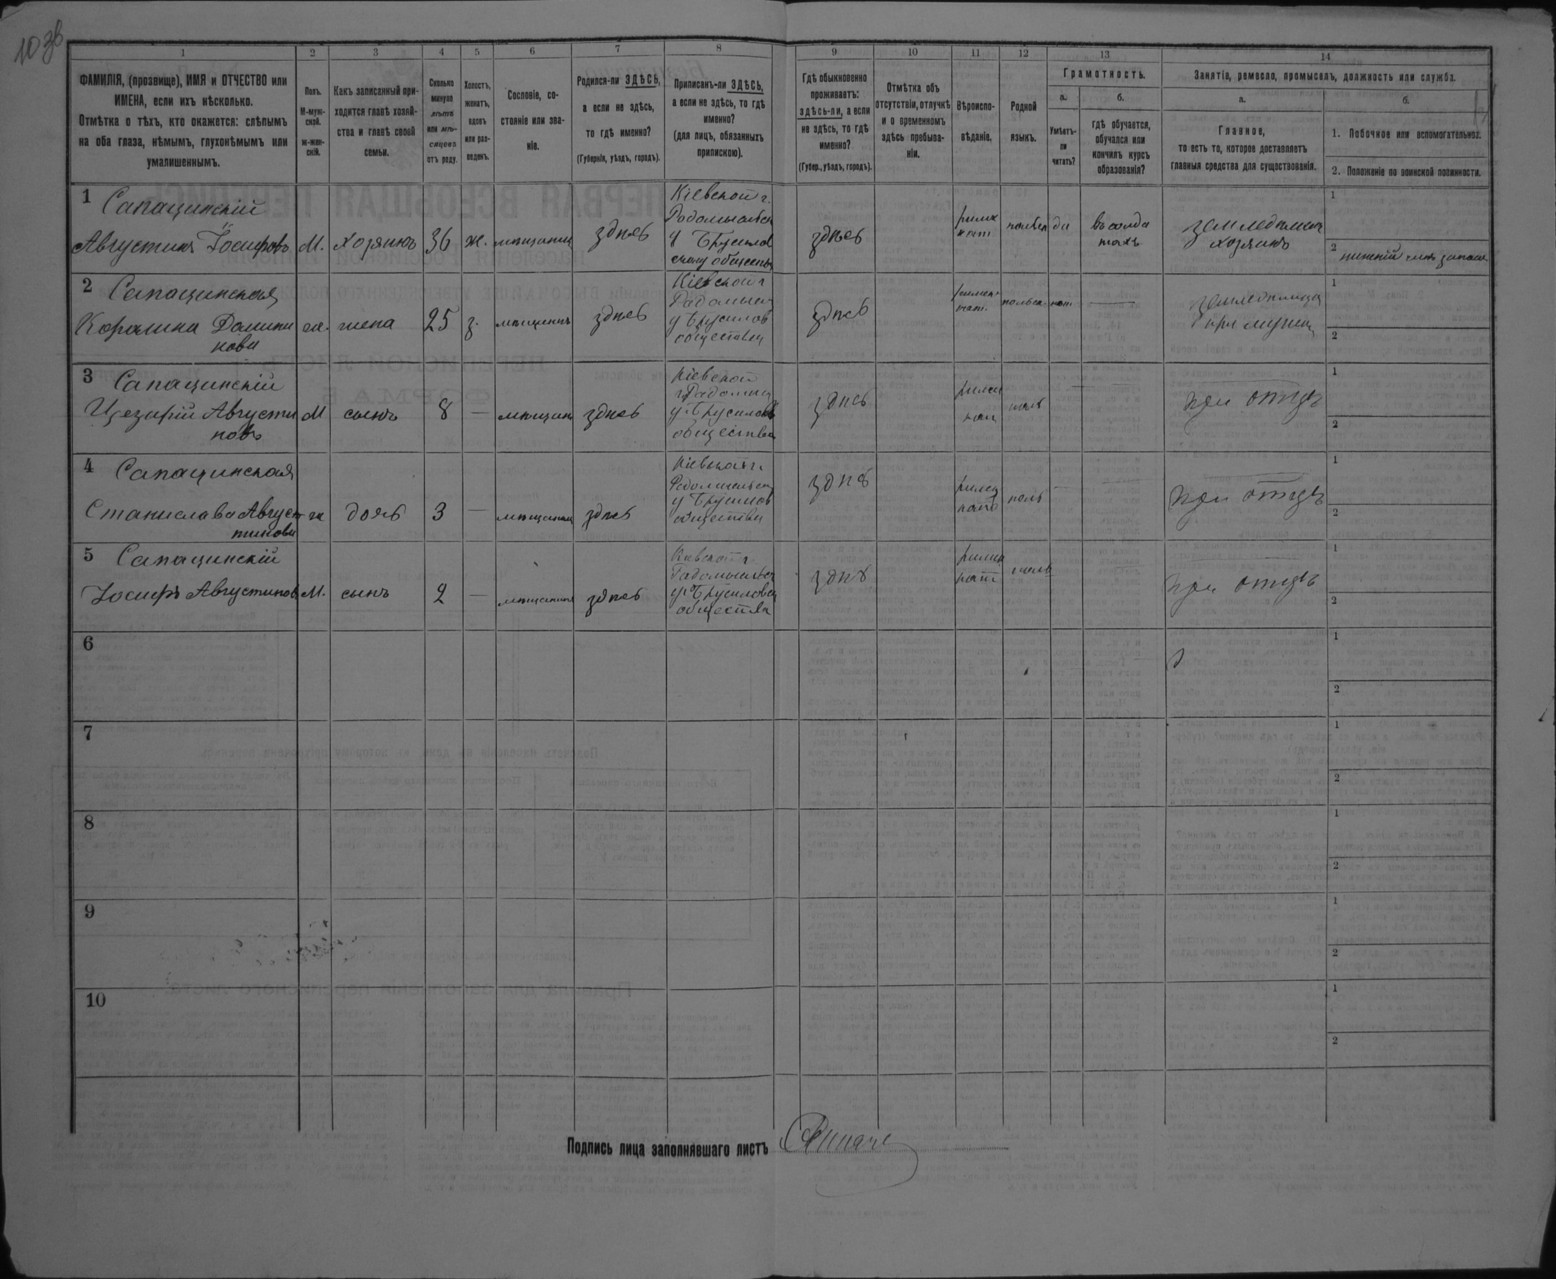 103об
1 2 3 4 5 6 7 8 9 10 11 12 13 14
ФАМИЛІЯ, (прозвище), ИМЯ и ОТЧЕСТВО или
ИМЕНА, если ихъ нѣсколько.
Отмѣтка о тѣхъ, кто окажется: слѣпымъ
на оба глаза, нѣмымъ, глухонѣмымъ или
умалишеннымъ.
Полъ.
М-муж-
ской.
ж-жен-
скій.
Какъ записанный при-
ходится главѣ хозяй-
ства и главѣ своей
семьи.
Сколько
минуло
лѣтъ
или мѣ-
сяцевъ
отъ роду.
Холостъ,
женатъ,
вдовъ
или раз-
веденъ.
Сословіе, со-
стояніе или зва-
ніе.
Родился-ли ЗДѢСЬ,
а если не здѣсь,
то гдѣ именно?
(Губернія, уѣздъ, городъ).
Приписанъ-ли ЗДѢСЬ,
а если не здѣсь, то гдѣ
именно?
(для лицъ, обязанныхъ
припискою).
Гдѣ обыкновенно
проживаетъ:
здѣсь-ли, а если
не здѣсь, то гдѣ
именно?
(Губер., уѣздъ, городъ).
Отмѣтка объ
отсутствіи, отлучкѣ
и о временномъ
здѣсь пребыва-
ніи.
Вѣроиспо-
вѣданіе.
Родной
языкъ.
Грамотность.
а.
Умѣетъ-
ли
читать?
б.
гдѣ обучается,
обучался или
кончилъ курсъ
образованія?
Занятіе, ремесло, промыселъ, должность или служба.
а.
Главное,
то есть то, которое доставляетъ
главныя средства для существованія.
б.
1. Побочное или вспомогательное.
2. Положеніе по воинской повинности.
1 Сапацинскій
Августинъ Іосифовъ М. хозяинъ 36 ж. мѣщанинъ здѣсь
Кіевской г.
Радомысльск
у Брусилов
скому обществу
здѣсь
римск
кат польск да
въ солда
тахъ
земледѣлец
хозяинъ
1
2 нижній чинъ запаса
2 Сапацинская
Каролина Домини
кова
жена 25 з. мѣщанка здѣсь
Кіевской г
Радомысл
у Брусилов
общества
здѣсь
римск
кат. польск нѣт —
земледѣлица
при мужѣ
1
2
3 Сапацинскій
Цезарій Августи
новъ
М сынъ 8 — мѣщан здѣсь
Кіевской
г Радомысл
у. Брусилов
общества
здѣсь
римск
кат польск
при отцѣ
1
2
4 Сапацинская
Станислава Август
тинова
дочь 3 — мѣщанка здѣсь
Кіевской г.
Радомысльск
у Брусилов
общества
здѣсь
римск
кат польск
при отцѣ
1
2
5 Сапацинскій
Іосифъ Августинов М. сынъ 2 — мѣщанинъ здѣсь
Кіевской г
Радомысльск
у. Брусиловск
общества
здѣсь
римск
кат польск
при отцѣ
1
2
6
1
2
7
1
2
8
1
2
9
1
2
10
1
2
Подпись лица заполнявшаго листъ